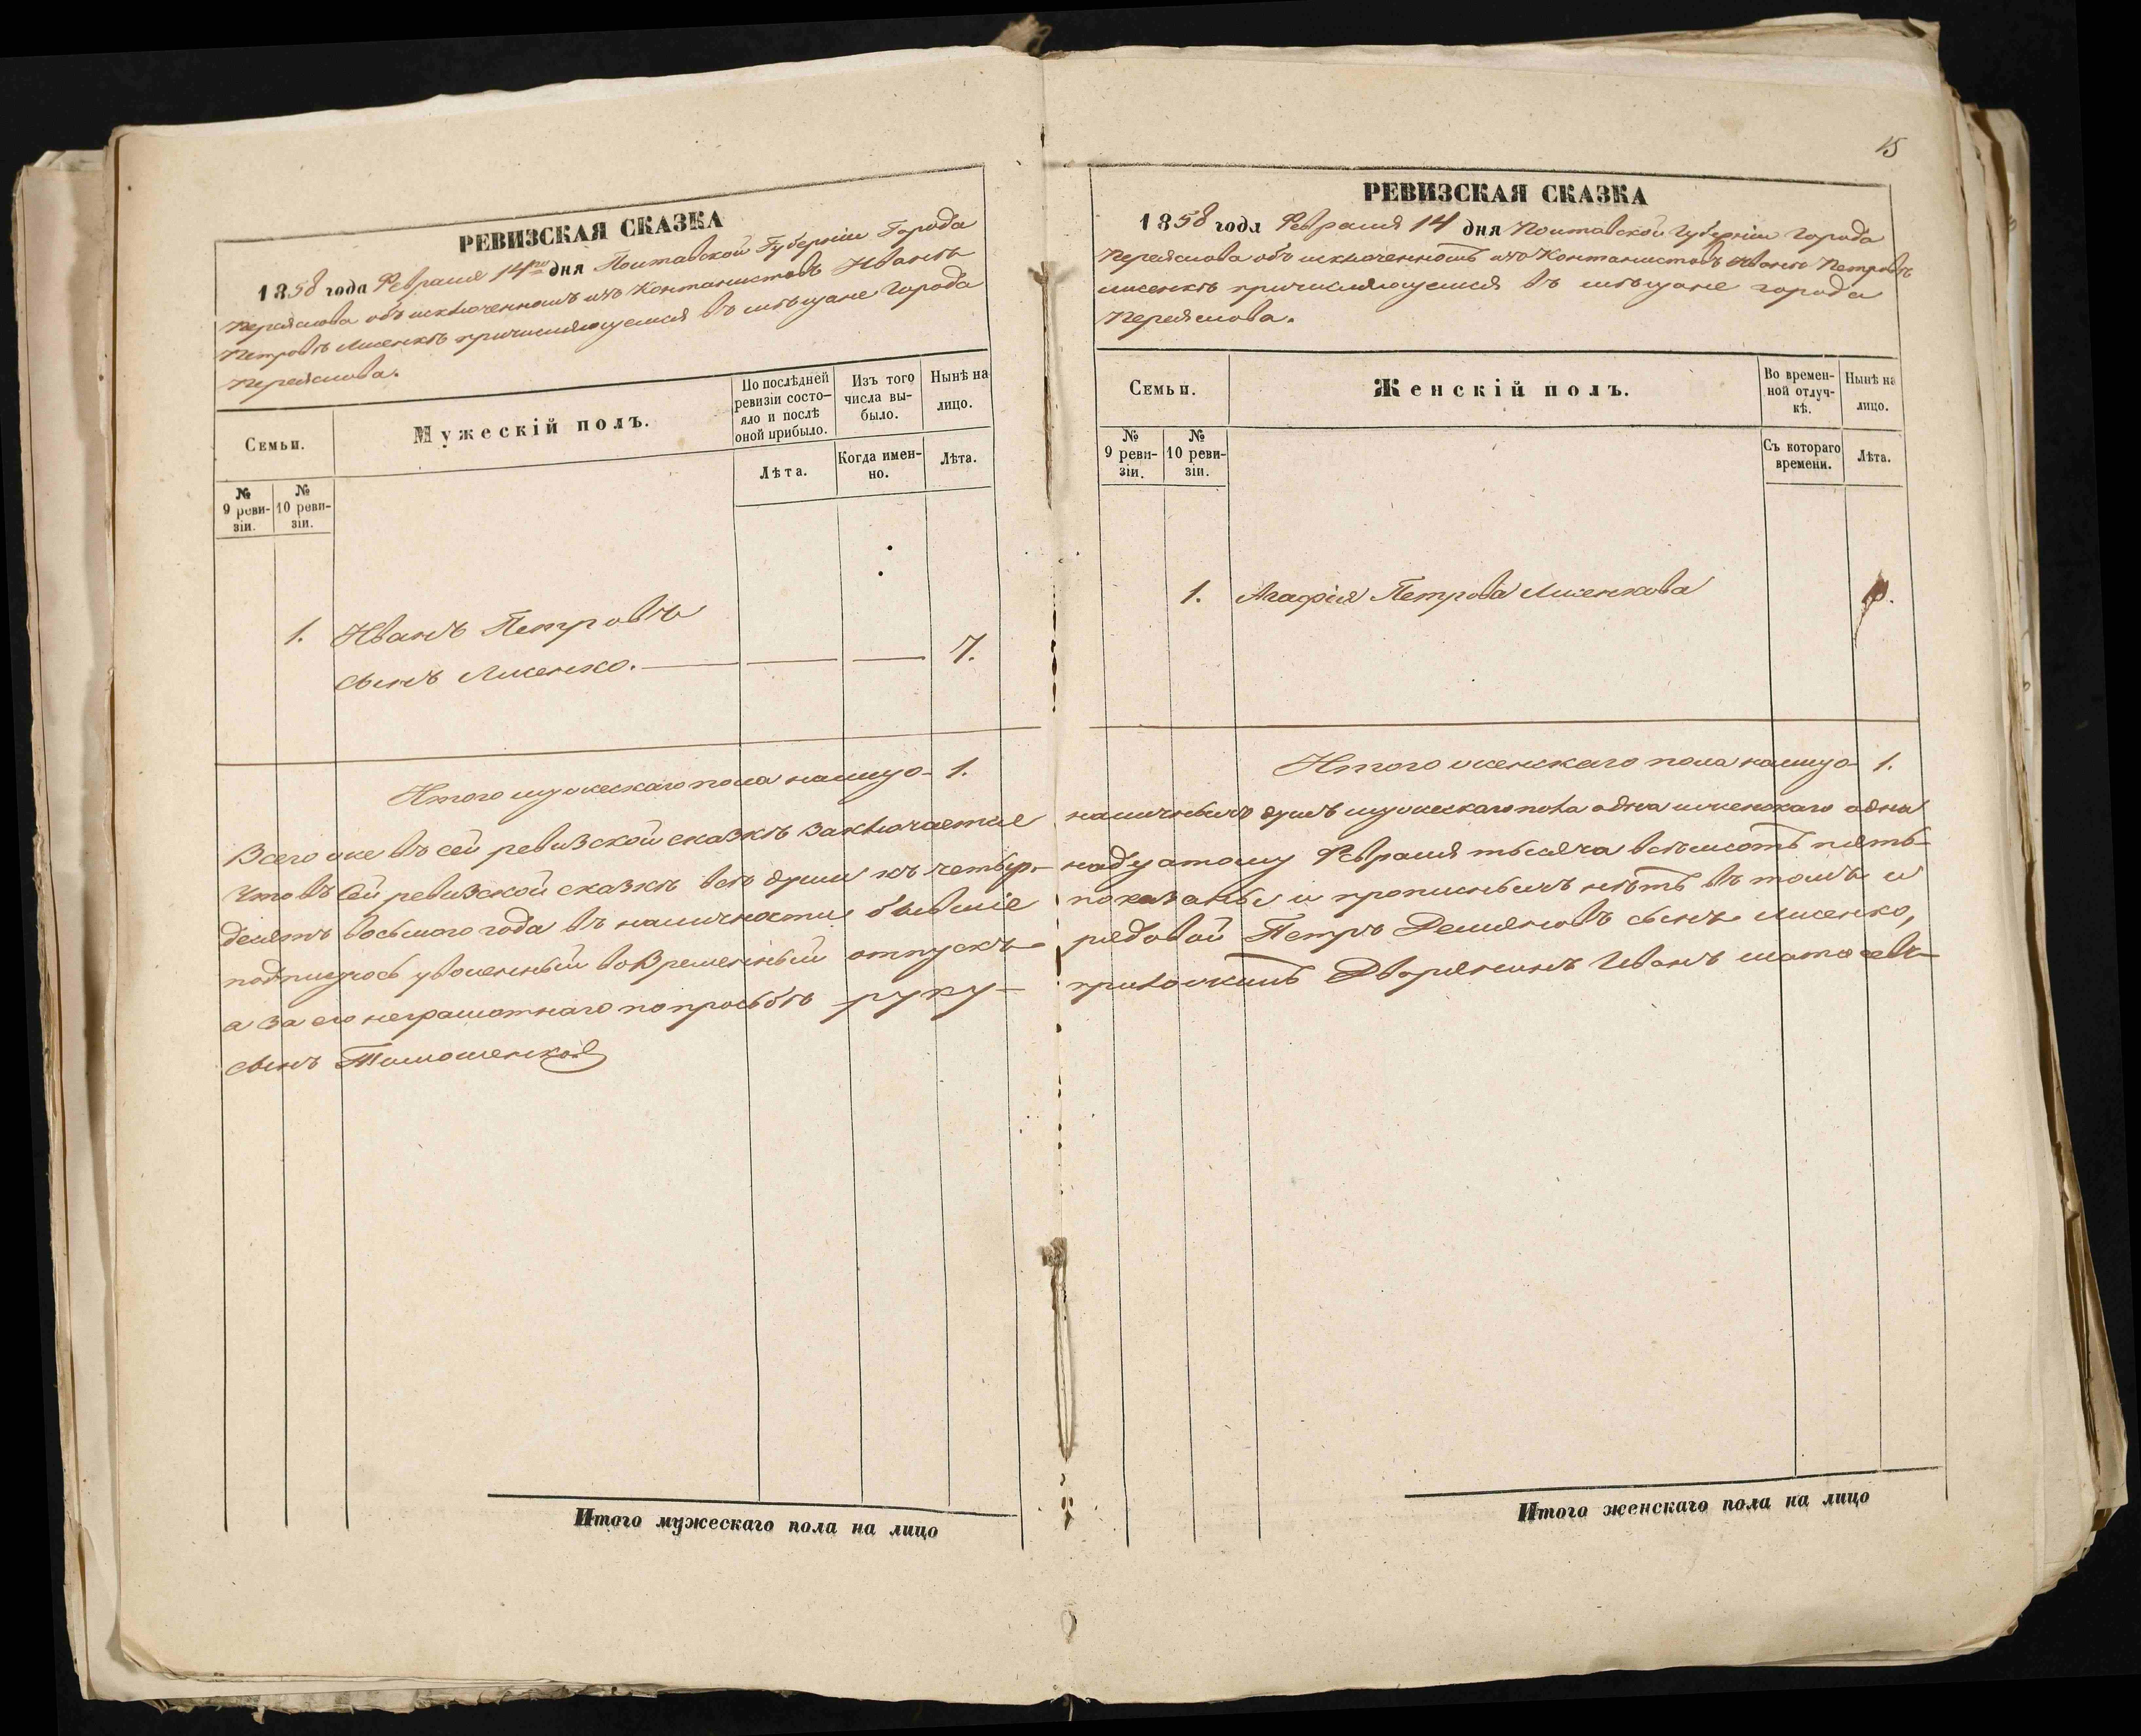 РЕВИЗСКАЯ СКАЗКА
1858 года Февраля 14го дня Полтавской Губерніи Города
Переяслова объ исключенномъ изъ Контанистовъ Иванѣ
Петровѣ Лисенкѣ причисляющемся въ мѣщане Города
Переяслова.
Семьи.
Мужескій полъ.
По послѣдней ревизіи состо-
яло и послѣ
оной прибыло.
Изъ того
числа вы-
было.
Нынѣ на
лицо.
Лѣта.
Когда имен-
но.
Лѣта.
№
9 реви-
зіи.
№
10 реви-
зіи.
1. Иванъ Петровъ
сынъ Лисенко. 7.
Итого мужескаго пола налицо 1.
Всего же въ сей ревизской сказкѣ заключается
Что въ сей ревизской сказкѣ всѣ души къ четыр-
десятъ восьмого года въ наличности бывшіе
подпишусь уволенный во временный отпускъ
а за его неграмотнаго по просьбѣ руку
сынъ Тимошенко
Итого мужескаго пола на лицо
15
РЕВИЗСКАЯ СКАЗКА
1858 года Февраля 14 дня Полтавской Губерніи Города
Переяслова объ исключенномъ изъ Контанистовъ Иванѣ Петровѣ
Лисенкѣ причисляющемся въ мѣщане города
Переяслова.
Семьи.
Женскій полъ.
Во времен-
ной отлуч-
кѣ.
Нынѣ на
лицо.
№
9 реви-
зіи.
№
10 реви-
зіи.
Съ котораго
времени.
Лѣта.
1. Агафія Петрова Лисенкова
Итого женскаго пола налицо 1.
наличныхъ душъ мужескаго пола одна и женскаго одна
надцатому Февраля тысяча восемсотъ пять-
показаны и прописныхъ нѣтъ въ томъ и
рядовой Петръ Демяновъ сынъ Лисенко,
приложилъ Дворянинъ Иванъ
Итого женскаго пола на лицо